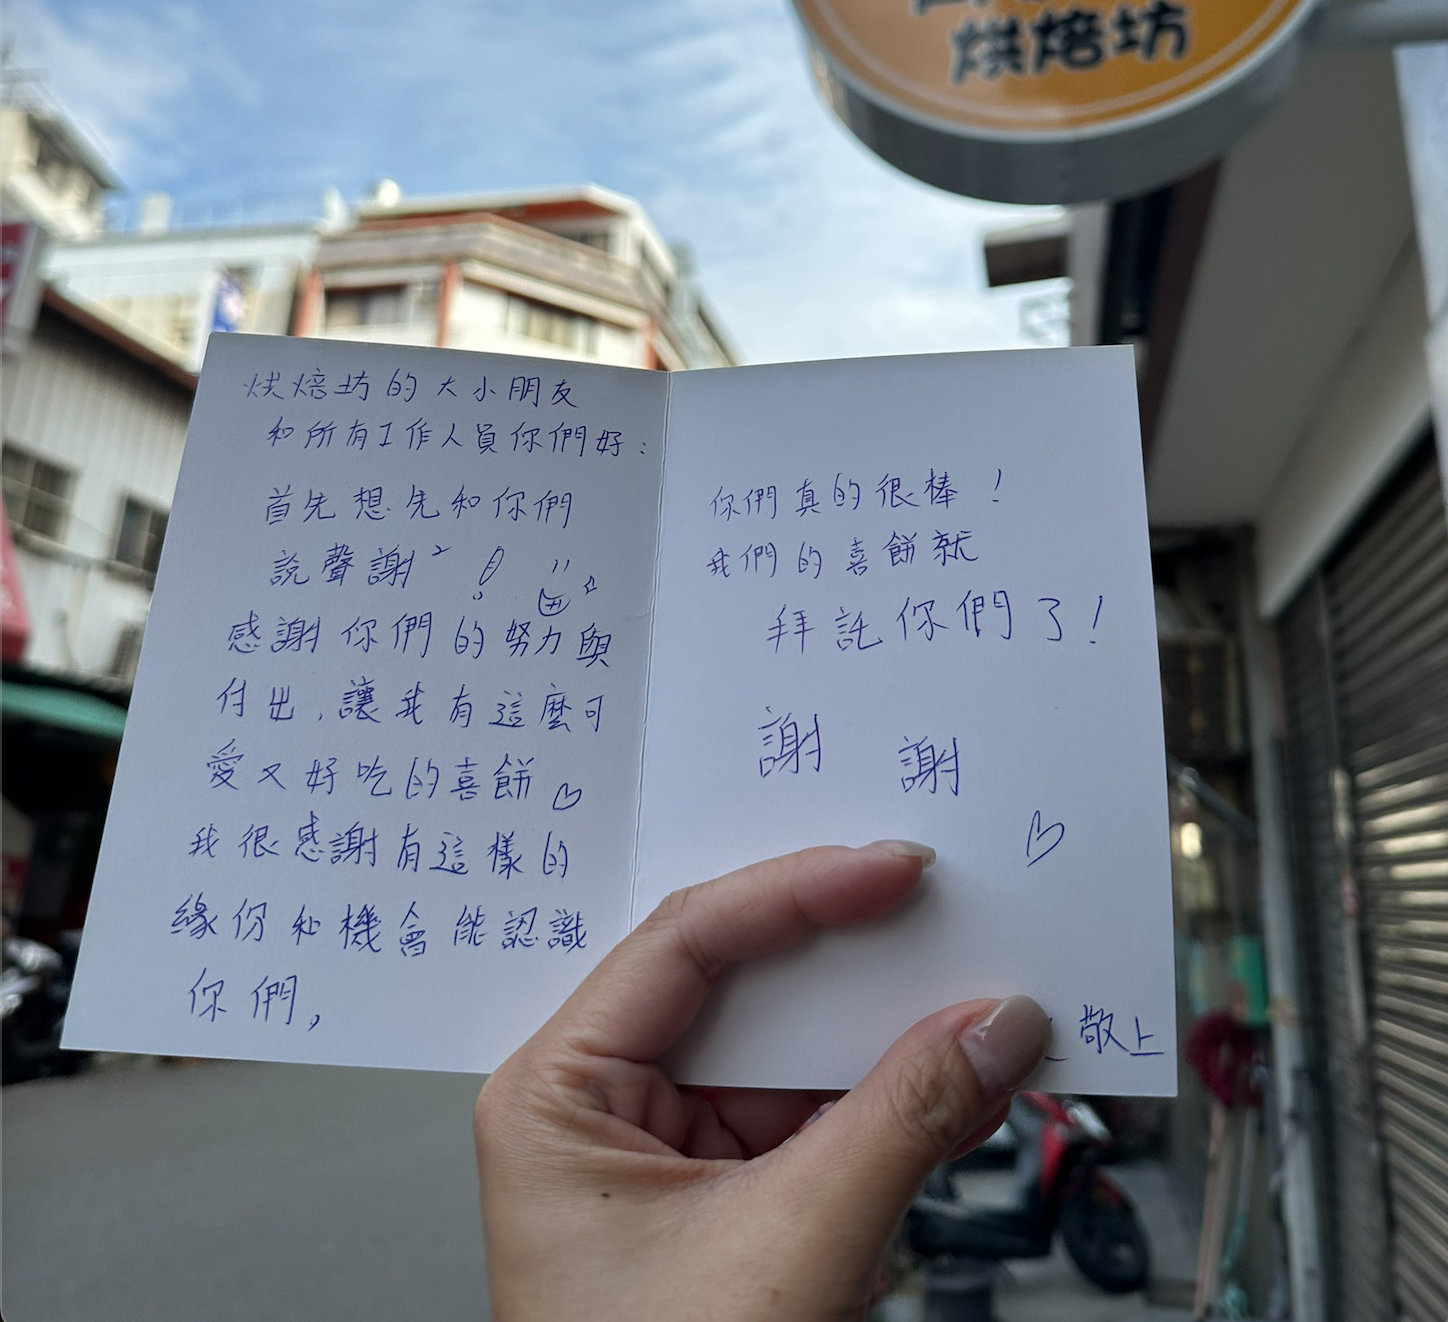 烘焙坊
烘焙坊的大小朋友
和所有工作人員你們好:
首先想先和你們
說聲謝²!
感謝你們的努力與
付出,讓我有這麼可
愛又好吃的喜餅♡
我很感謝有這樣的
緣份和機會能認識
你們,
你們真的很棒!
我們的喜餅就
拜託你們了!
謝謝
♡
敬上